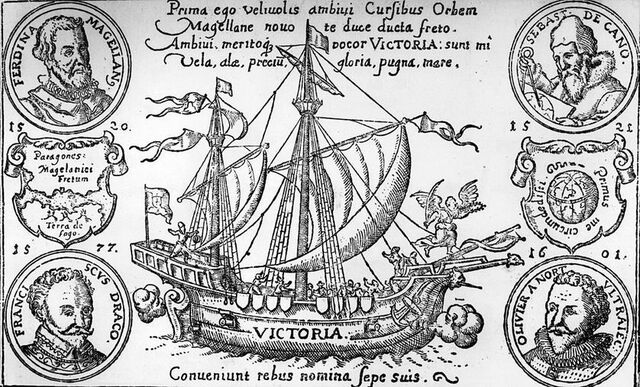 Prima ego velivolis ambivi Cursibus Orbem
Magellane novo te duce ducta freto.
Ambivi, meritoq, vocor VICTORIA: sunt mi
Vela, alæ, preciu, gloria, pugna, mare.
FERDINA MAGELLAN9
SEBAST. DE CANO.
15 20.
15 21
Paragones:
Magelanici
Fretum
Terra de
fogo.
Primus
me circumdedisti
15 77.
16 01.
FRANCISCVS DRACO.
OLIVIER A NORT VLTRAIEC.
VICTORIA.
Conveniunt rebus nomina sepe suis.